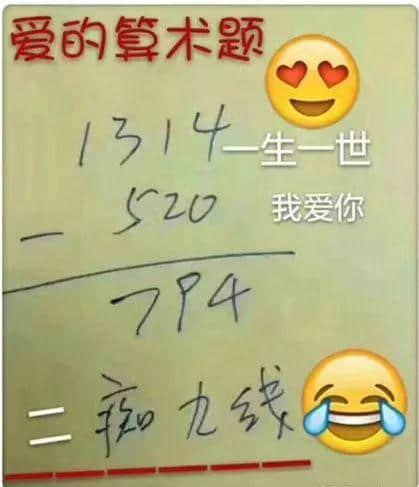 爱的算术题
1314 一生一世
- 520 我爱你
794
= 痴九线